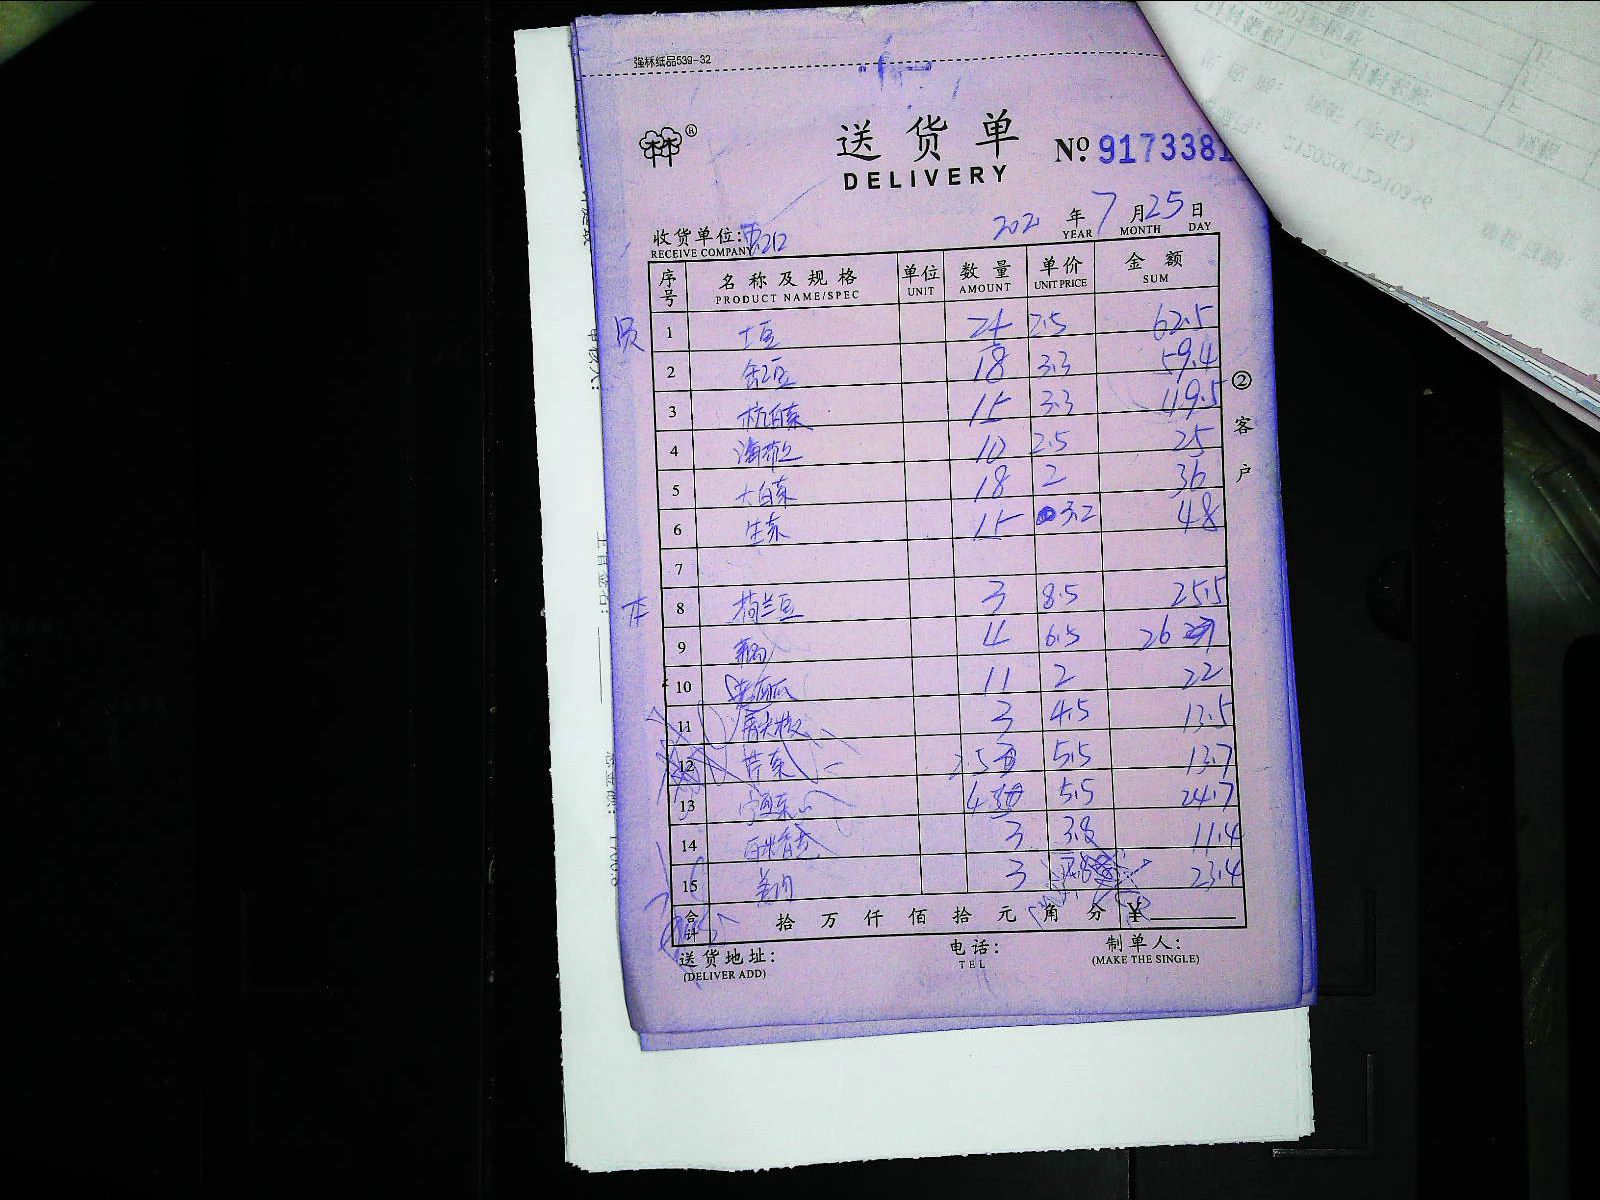 强林纸品539-32
送货单
DELIVERY
№ 9173381
收货单位: 212
RECEIVE COMPANY
202 年 7 月 25 日
YEAR MONTH DAY
序号 名称及规格 单位 数量 单价 金额
PRODUCT NAME/SPEC UNIT AMOUNT UNIT PRICE SUM
1 土豆 24 2.5 62.5
2 豆 18 3.3 59.4
3 杭白菜 15 3.3 119.5
4 海带 10 2.5 25
5 大白菜 18 2 36
6 生菜 15 3.2 48
7
8 荷兰豆 3 8.5 25.5
9 4 6.5 26
10 老南瓜 11 2 22
11 青大椒 3 4.5 13.5
12 芹菜 2.5 5.5 13.7
13 4.5 5.5 24.7
14 3 3.8 11.4
15 姜 3 7.8 23.4
合计 拾 万 仟 佰 拾 元 角 分 ¥
② 客户
送货地址: 电话: 制单人:
(DELIVER ADD) TEL (MAKE THE SINGLE)